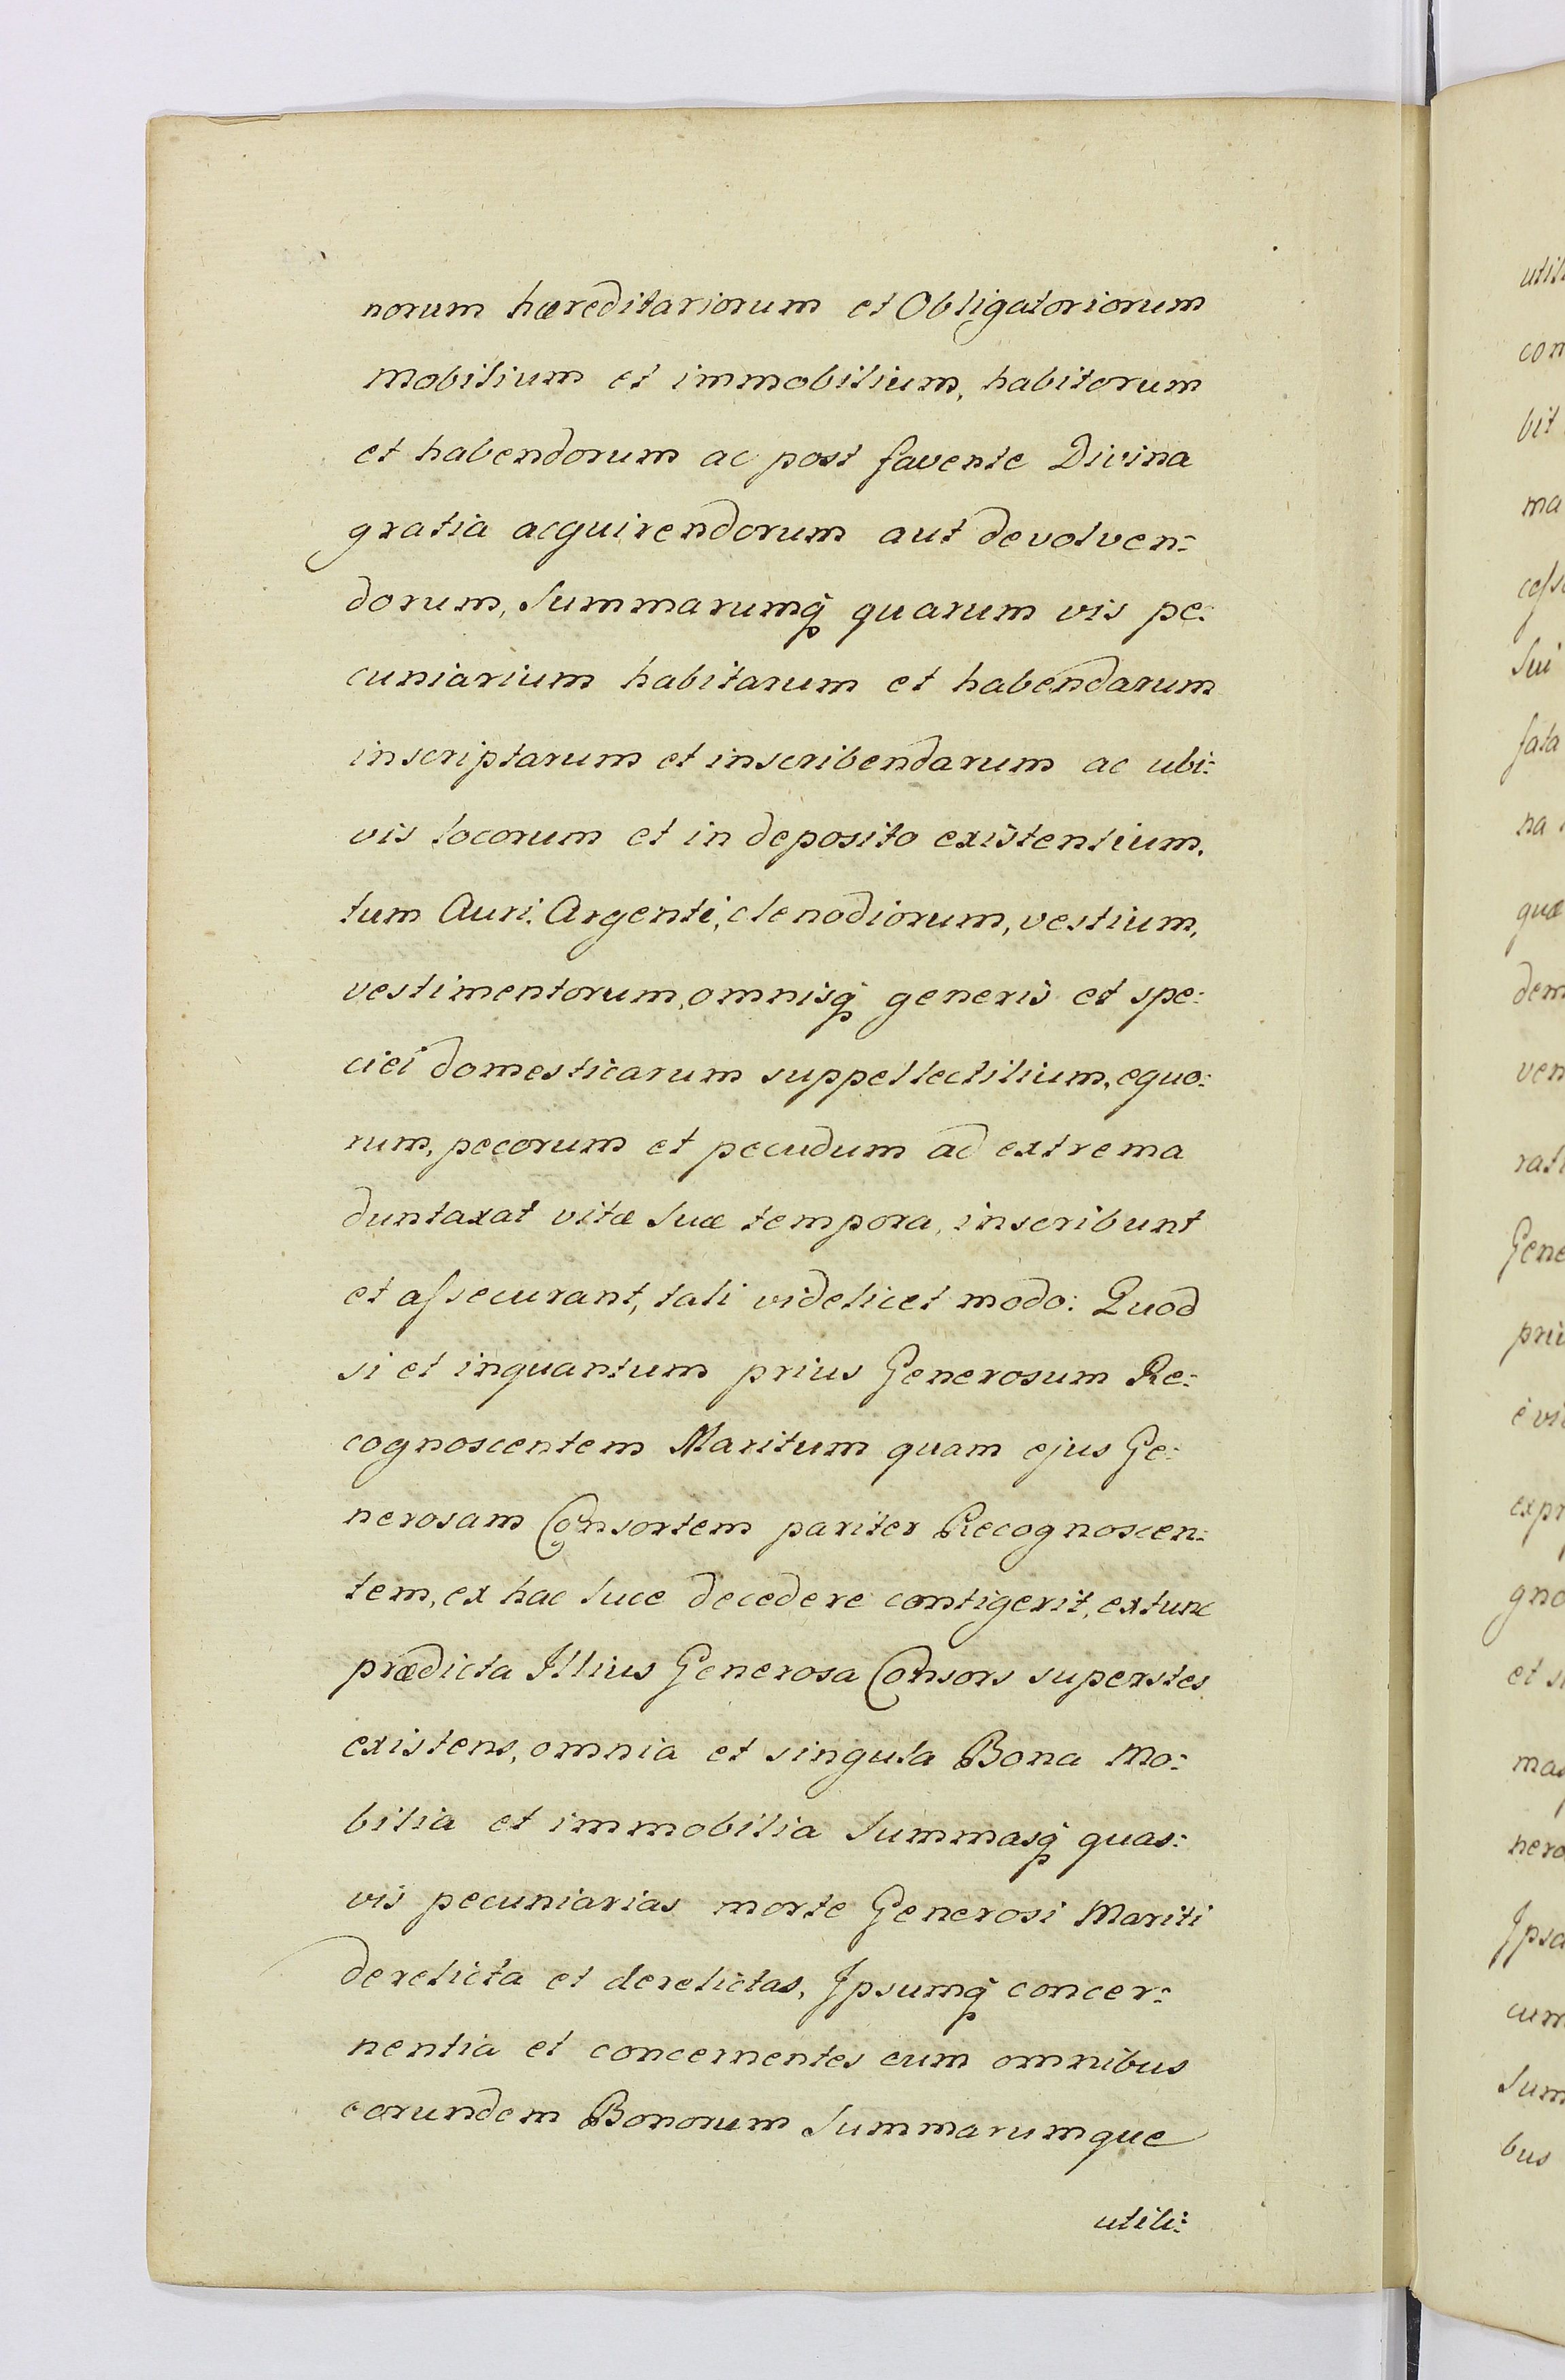 norum hæreditariorum et Obligatoriorum
Mobilium et immobilium, habitorum
et habendorum ac post favente Divina
gratia acquirendorum aut devolven:
dorum, Summarumq́ quarum vis pe:
cuniarium habitarum et habendarum
inscriptarum et inscribendarum ac ubi:
vis locorum et in deposito existentium,
tum Auri, Argenti, clenodiorum, vestium,
vestimentorum, omnisq́ generis et spe:
ciei domesticarum suppellectilium, equo:
rum, pecorum et pecudum ad extrema
duntaxat vitæ suæ tempora, inscribunt
et aſsecurant, tali videlicet modo: Quod
si et inquantum prius Generosum Re:
cognoscentem Maritum quam ejus Ge:
nerosam Consortem pariter Recognoscen:
tem, ex hac luce decedere contigerit, extunc
prædicta Illius Generosa Consors superstes
existens, omnia et singula Bona Mo:
bilia et immobilia Summasq́ quas:
vis pecuniarias morte Generosi Mariti
derelicta et derelictas, Ipsumq́ concer:
nentia et concernentes cum omnibus
eorundem Bonorum Summarumque
utili:
utili
con
bit
ma
ceſs
Sui
fata
na
quæ
dem
ven
rati
Gene
priu
evi
expr
gno
et s
mar
nero
Ipsa
cum
Sum
bus